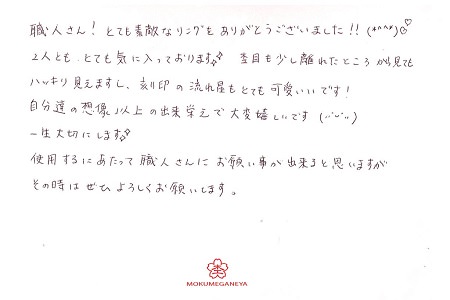 職人さん！とても素敵なリングをありがとうございました!! (*^^*)♡
2人とも、とても気に入っております✨ 杢目も少し離れたところから見ても
ハッキリ見えますし、刻印の流れ星もとても可愛いいです！
自分達の想像以上の出来栄えで大変嬉しいです (ˊᵕˋ)
一生大切にします✨
使用するにあたって職人さんにお願い事が出来ると思いますが
その時はぜひよろしくお願いします。
MOKUMEGANEYA